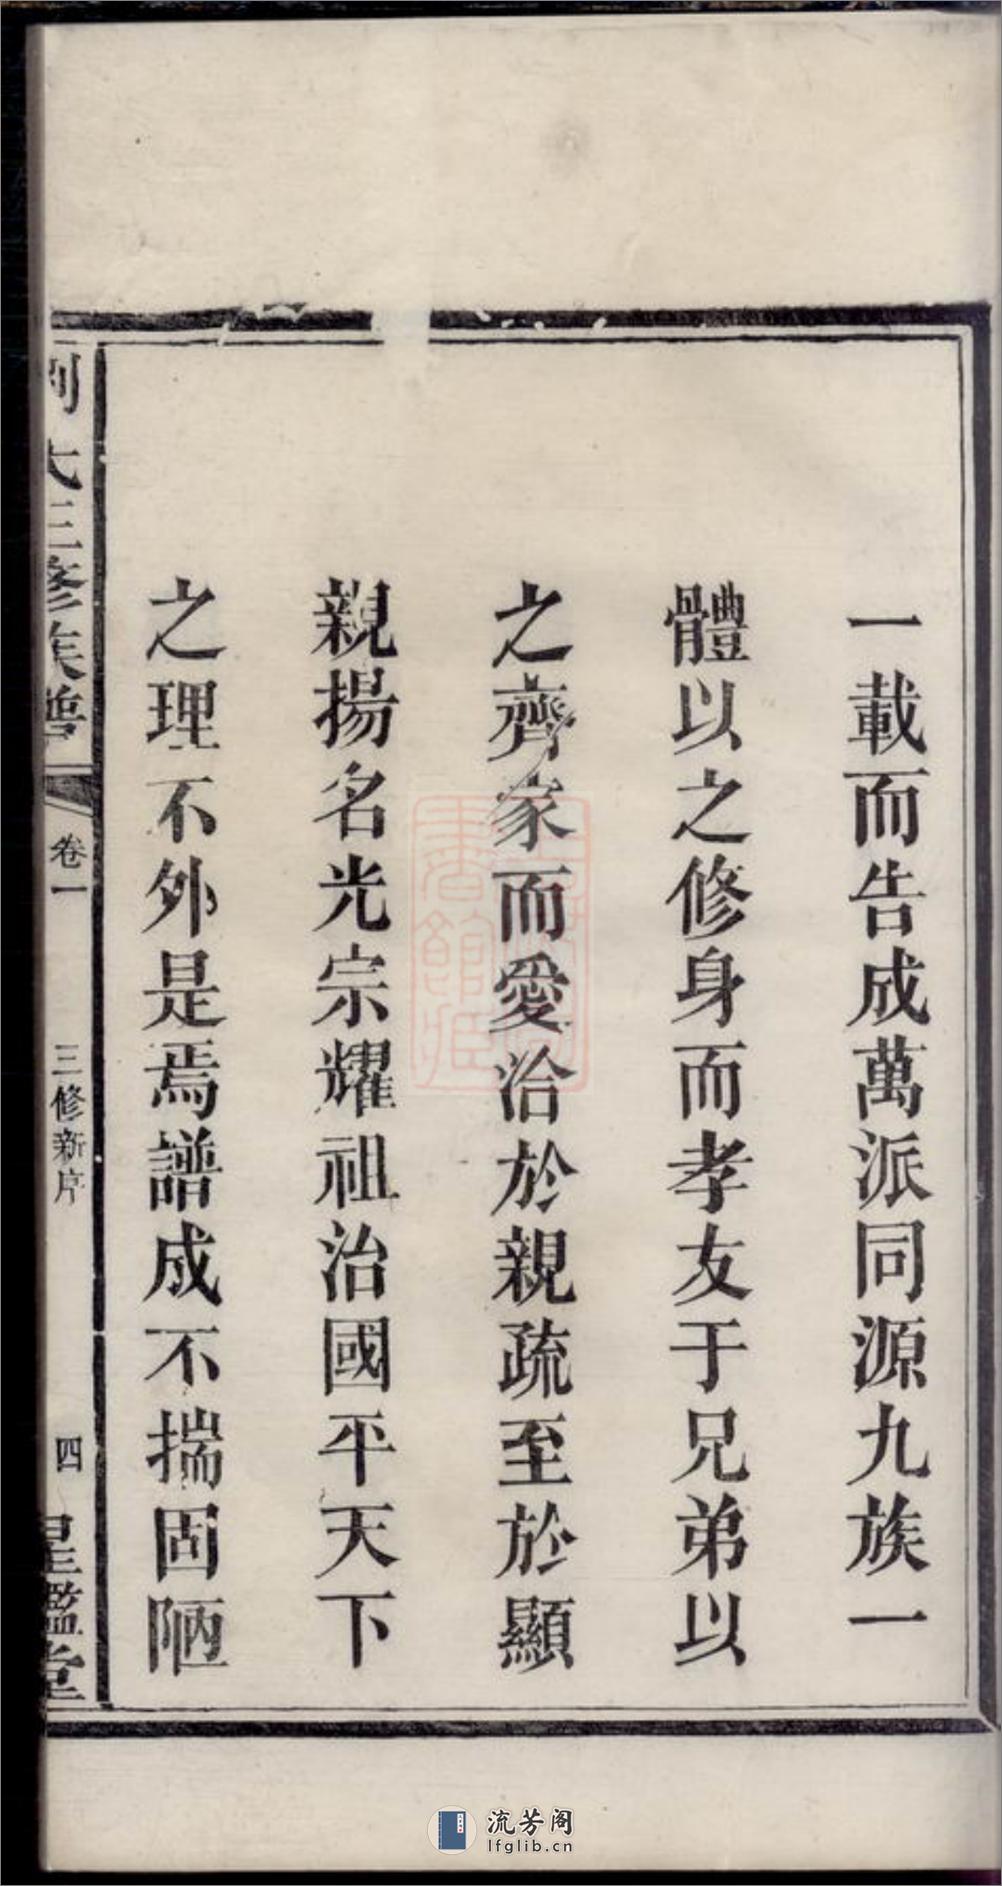 一載而告成萬派同源九族一
體以之修身而孝友于兄弟以
之齊家而愛洽於親疏至於顯
親揚名光宗耀祖治國平天下
之理不外是焉譜成不揣固陋
劉氏三修族譜
卷一
三修新序
四
鑑堂
流芳阁
lfglib.cn